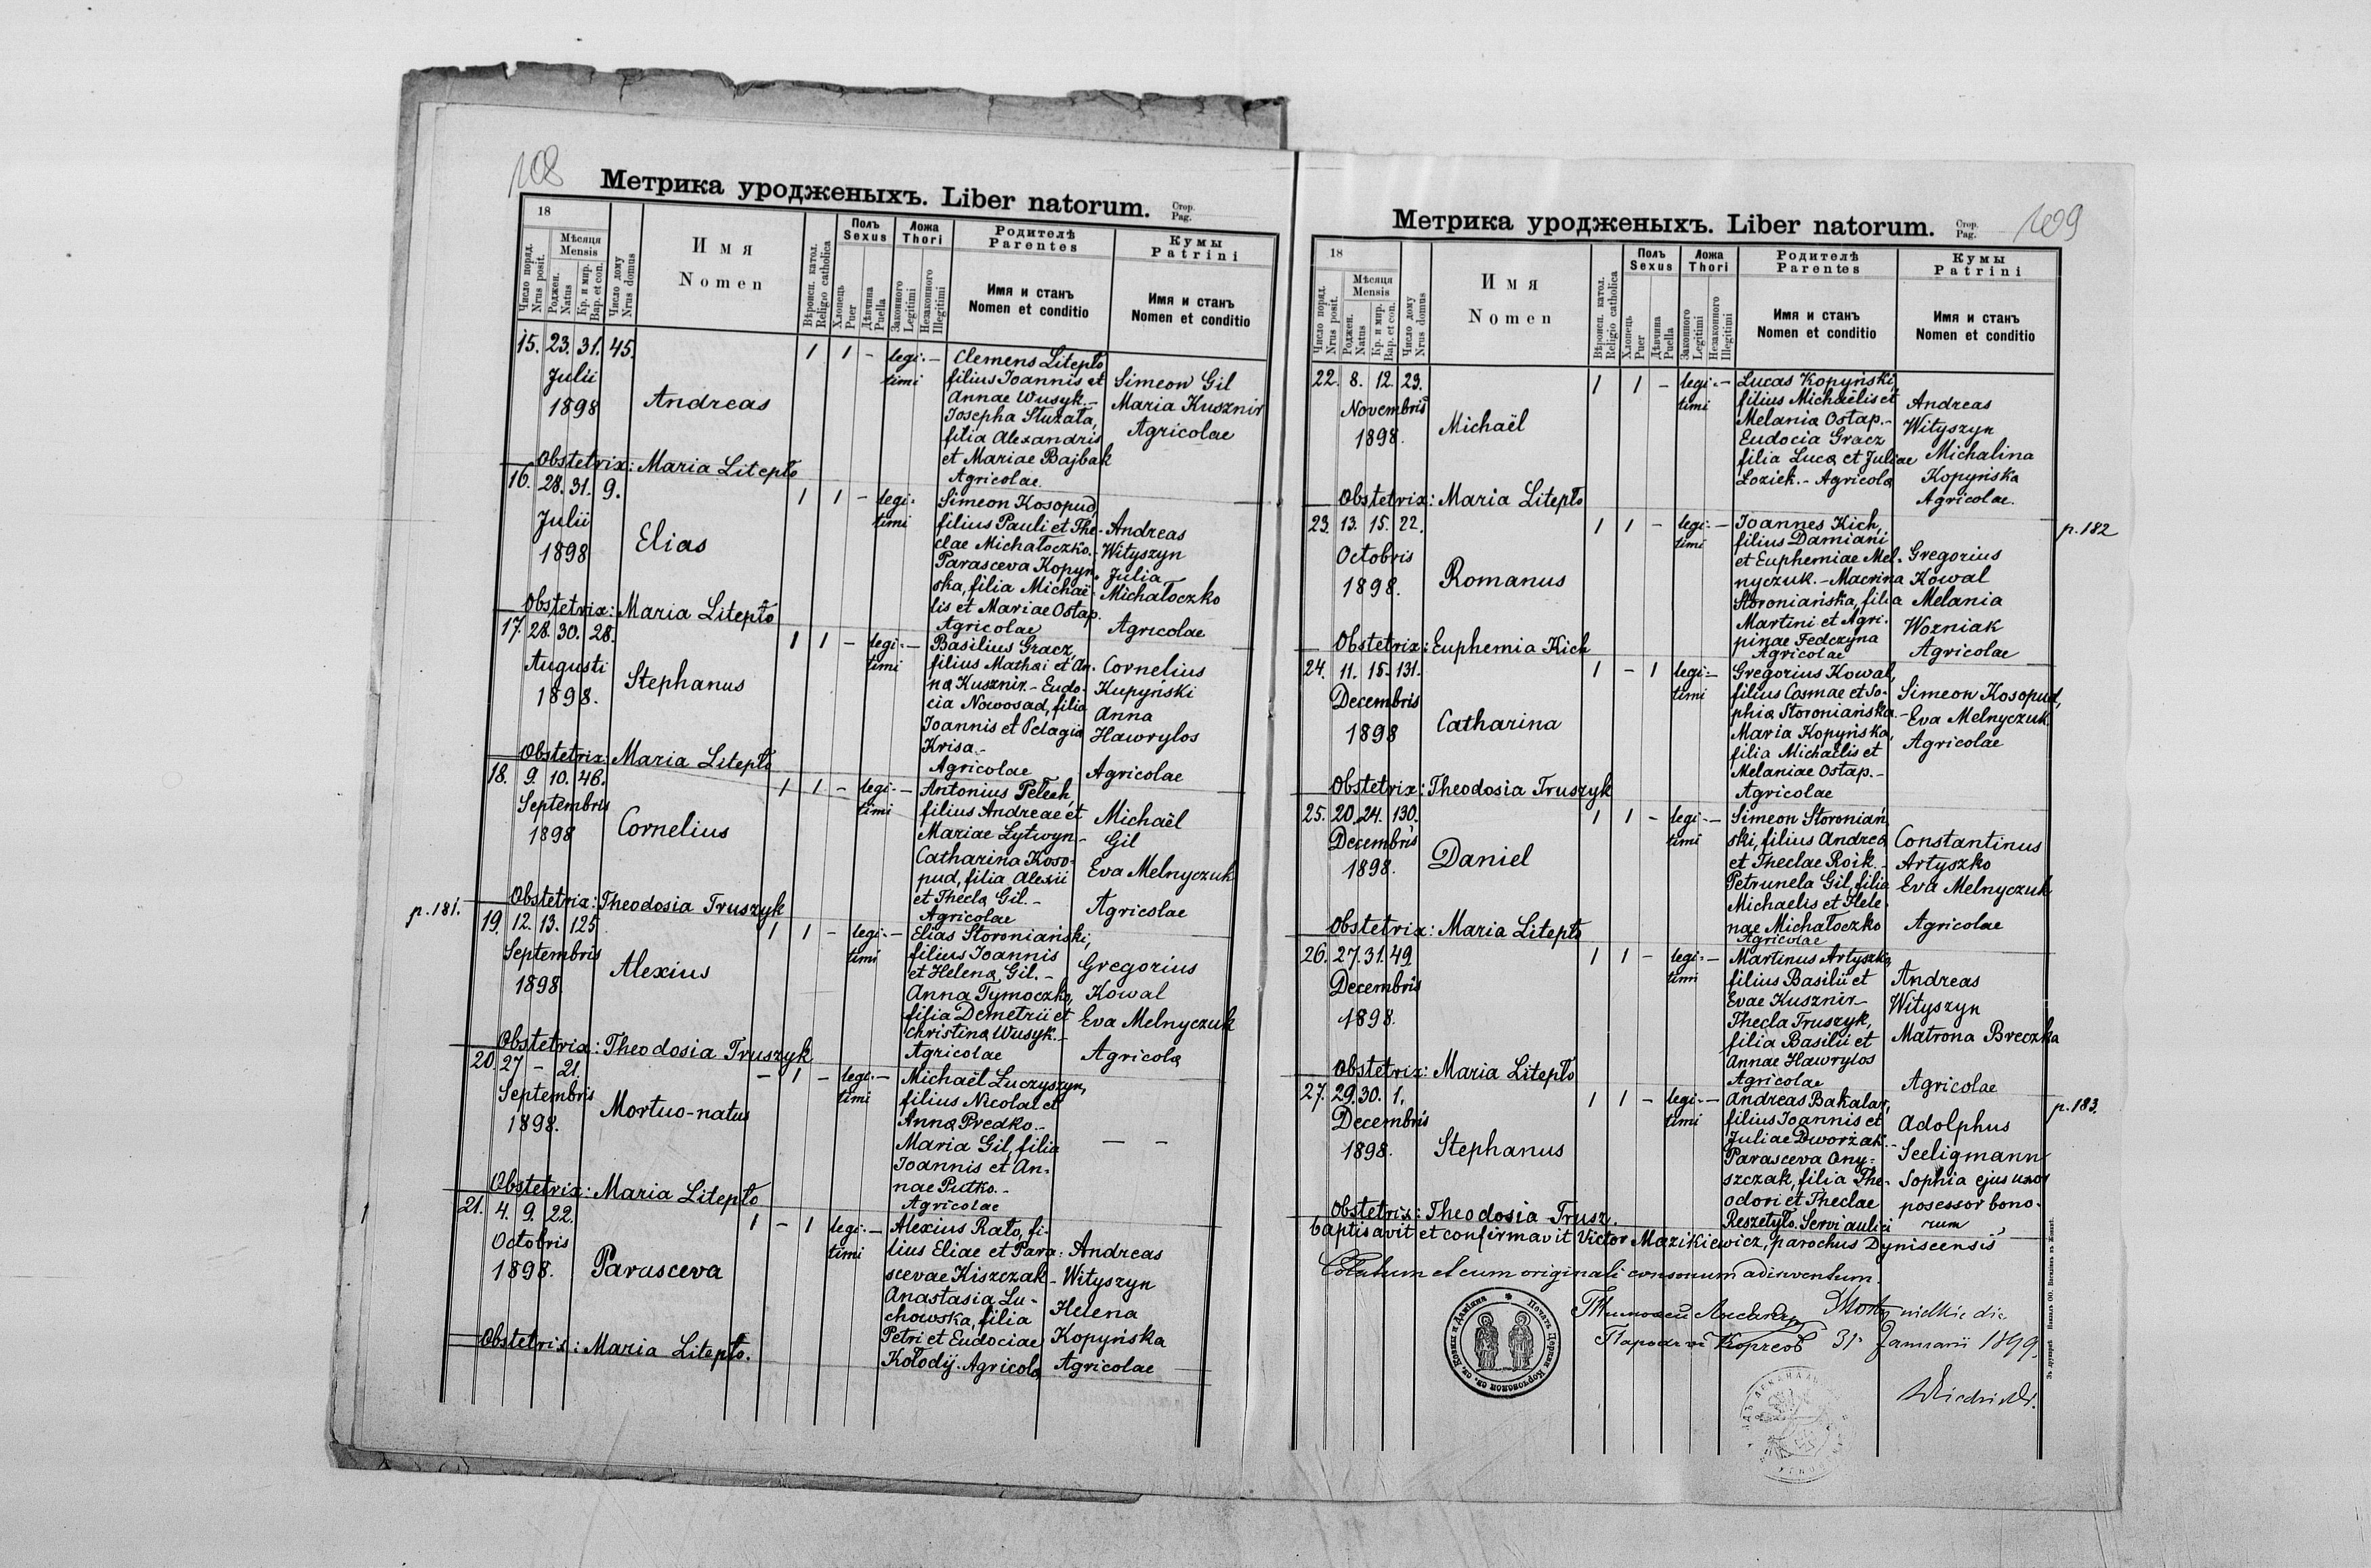 108
Метрика уродженыхъ. Liber natorum.
Стор.
Pag.
18
Число поряд.
Nrus posit.
Мѣсяця
Mensis
Роджен.
Natus
Кр. и мир.
Bap. et con.
Число дому
Nrus domus
Имя
Nomen
Вѣроисп. катол.
Religio catholica
Полъ
Sexus
Хлопець
Puer
Дѣвчина
Puella
Ложа
Thori
Законного
Legitimi
Незаконного
Illegitimi
Родителѣ
Parentes
Имя и станъ
Nomen et conditio
Кумы
Patrini
Имя и станъ
Nomen et conditio
15. 23. 31. 45.
Julii
1898
Andreas
1 1 - legi- -
timi
Clemens Litepło
filius Joannis et
Annae Wusyk.-
Josepha Słuzała,
filia Alexandris
et Mariae Bajbak
Agricolae.
Simeon Gil
Maria Kusznir
Agricolae
Obstetrix: Maria Litepło
16. 28. 31. 9.
Julii
1898
Elias
1 1 - legi-
timi
Simeon Kosopud
filius Pauli et The-
clae Michałoczko.-
Parasceva Kopyń-
ska, filia Michaë-
lis et Mariae Ostap.
Agricolae
Andreas
Wityszyn
Julia
Michałoczko
Agricolae
Obstetrix: Maria Litepło
17. 28. 30. 28.
Augusti
1898.
Stephanus
1 1 - legi- -
timi
Basilius Gracz,
filius Mathæi et An-
næ Kusznir.- Eudo-
cia Nowosad, filia
Joannis et Pelagiæ
Krisa.-
Agricolae
Cornelius
Kupyński
Anna
Hawrylos
Agricolae
Obstetrix: Maria Litepło
18. 9. 10. 46.
Septembris
1898
Cornelius
1 1 - legi- -
timi
Antonius Pelech,
filius Andreae et
Mariae Lytwyn-
Catharina Koso-
pud, filia Alexii
et Theclæ Gil.-
Agricolae
Michaël
Gil
Eva Melnyczuk
Agricolae
Obstetrix: Theodosia Truszyk
p. 181.
19. 12. 13. 125
Septembris
1898.
Alexius
1 1 - legi- -
timi
Elias Storoniański,
filius Joannis
et Helenæ Gil.-
Anna Tymoczko,
filia Demetrii et
Christinæ Wusyk.-
Agricolae
Gregorius
Kowal
Eva Melnyczuk
Agricolæ
Obstetrix: Theodosia Truszyk
20. 27 - 21.
Septembris
1898.
Mortuo-natus
- 1 - legi- -
timi
Michaël Luczyszyn,
filius Nicolai et
Annæ Predko.-
Maria Gil, filia
Joannis et An-
nae Putko.-
Agricolae
- -
Obstetrix: Maria Litepło
21. 4. 9. 22.
Octobris
1898.
Parasceva
1 - 1 legi- -
timi
Alexius Rato, fi-
lius Eliae et Para-
scevae Kiszczak-
Anastasia Lu-
chowska, filia
Petri et Eudociae
Kołodij. Agricolæ
Andreas
Wityszyn
Helena
Kopyńska
Agricolae
Obstetrix: Maria Litepło.
109
Метрика уродженыхъ. Liber natorum.
Стор.
Pag.
18
Число поряд.
Nrus posit.
Мѣсяця
Mensis
Роджен.
Natus
Кр. и мир.
Bap. et con.
Число дому
Nrus domus
Имя
Nomen
Вѣроисп. катол.
Religio catholica
Полъ
Sexus
Хлопець
Puer
Дѣвчина
Puella
Ложа
Thori
Законного
Legitimi
Незаконного
Illegitimi
Родителѣ
Parentes
Имя и станъ
Nomen et conditio
Кумы
Patrini
Имя и станъ
Nomen et conditio
22. 8. 12. 23.
Novembris
1898.
Michaël
1 1 - legi- -
timi
Lucas Kopyński,
filius Michaëlis et
Melaniæ Ostap.-
Eudocia Gracz
filia Lucæ et Juliae
Łoziek.- Agricolæ
Andreas
Wityszyn
Michalina
Kopyńska
Agricolae.
Obstetrix: Maria Litepło
23. 13. 15. 22.
Octobris
1898.
Romanus
1 1 - legi- -
timi
Joannes Kich,
filius Damiani
et Euphemiae Mel-
nyczuk.- Macrina
Storoniańska, filia
Martini et Agri-
pinae Fedczyna
Agricolae
Gregorius
Kowal
Melania
Wozniak
Agricolae
p. 182
Obstetrix: Euphemia Kich
24. 11. 15. 131.
Decembris
1898
Catharina
1 - 1 legi- -
timi
Gregorius Kowal,
filius Cosmae et So-
phiæ Storoniańska.-
Maria Kopyńska,
filia Michaëlis et
Melaniae Ostap.-
Agricolae
Simeon Kosopud,
Eva Melnyczuk.
Agricolae
Obstetrix: Theodosia Truszyk
25. 20. 24. 130.
Decembris
1898.
Daniel
1 1 - legi- -
timi
Simeon Storoniań-
ski, filius Andreæ
et Theclae Roik.-
Petrunela Gil, filia
Michaelis et Hele-
nae Michałoczko
Agricolae
Constantinus
Artyszko
Eva Melnyczuk
Agricolae
Obstetrix: Maria Litepło
26. 27. 31. 49
Decembris
1898.
1 1 - legi- -
timi
Martinus Artyszko,
filius Basilii et
Evae Kusznir-
Thecla Truszyk,
filia Basilii et
Annae Hawrylos
Agricolae
Andreas
Wityszyn
Matrona Breczka
Agricolae
Obstetrix: Maria Litepło
27. 29. 30. 1.
Decembris
1898.
Stephanus
1 1 - legi- -
timi
Andreas Bakalar,
filius Joannis et
Juliae Dworżak.-
Parasceva Ony-
szczak, filia The-
odori et Theclae
Reszetyło. Servi aulici
Adolphus
Seeligmann
Sophia ejus uxor
posessor bono-
rum
p. 183.
Obstetrix: Theodosia Trusz.
baptisavit et confirmavit Victor Mazikiewicz, parochus Dyniscensis
Colatum et cum originali consonum adinventum.
die
31 Januarii 1899.
Печать Церкви Корчовской св. св. Космы и Даміяна